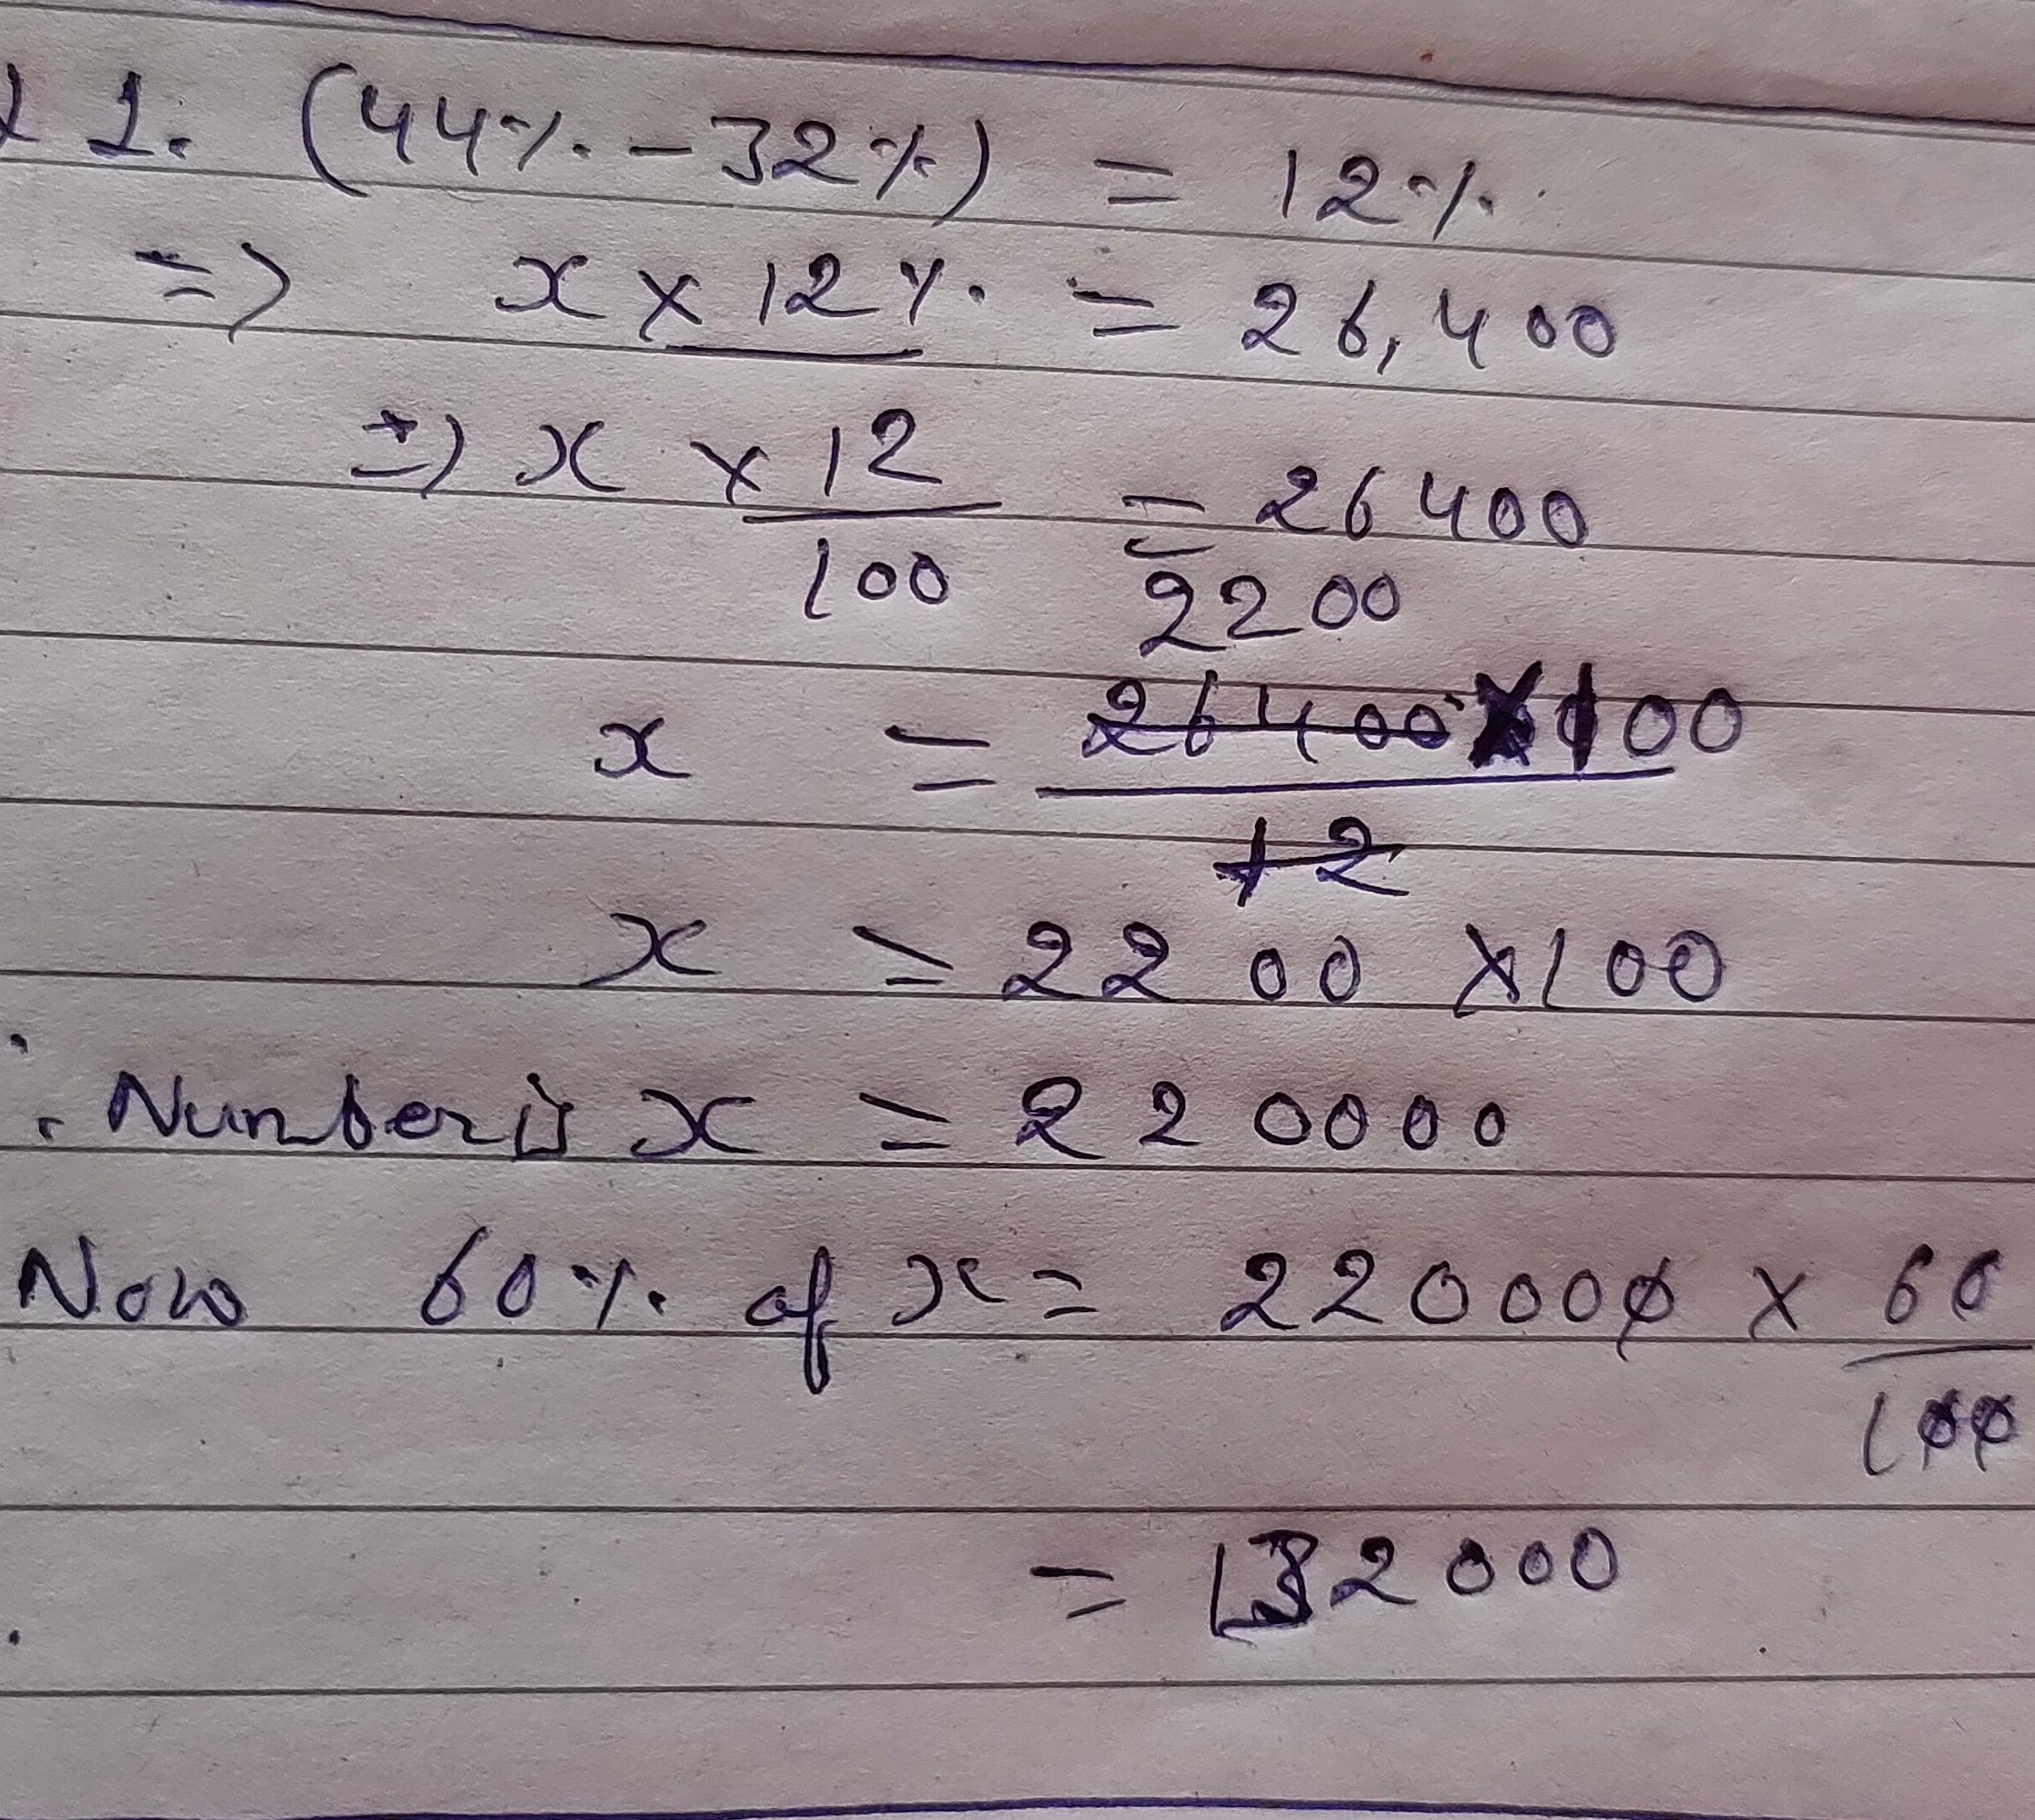 1. (44% - 32%) = 12%
=> x × 12% = 26,400
=> x × 12/100 = 26400
2200
x = 26400 × 100 / 12
x = 2200 × 100
∴ Number is x = 220000
Now 60% of x = 220000 × 60/100
= 132000